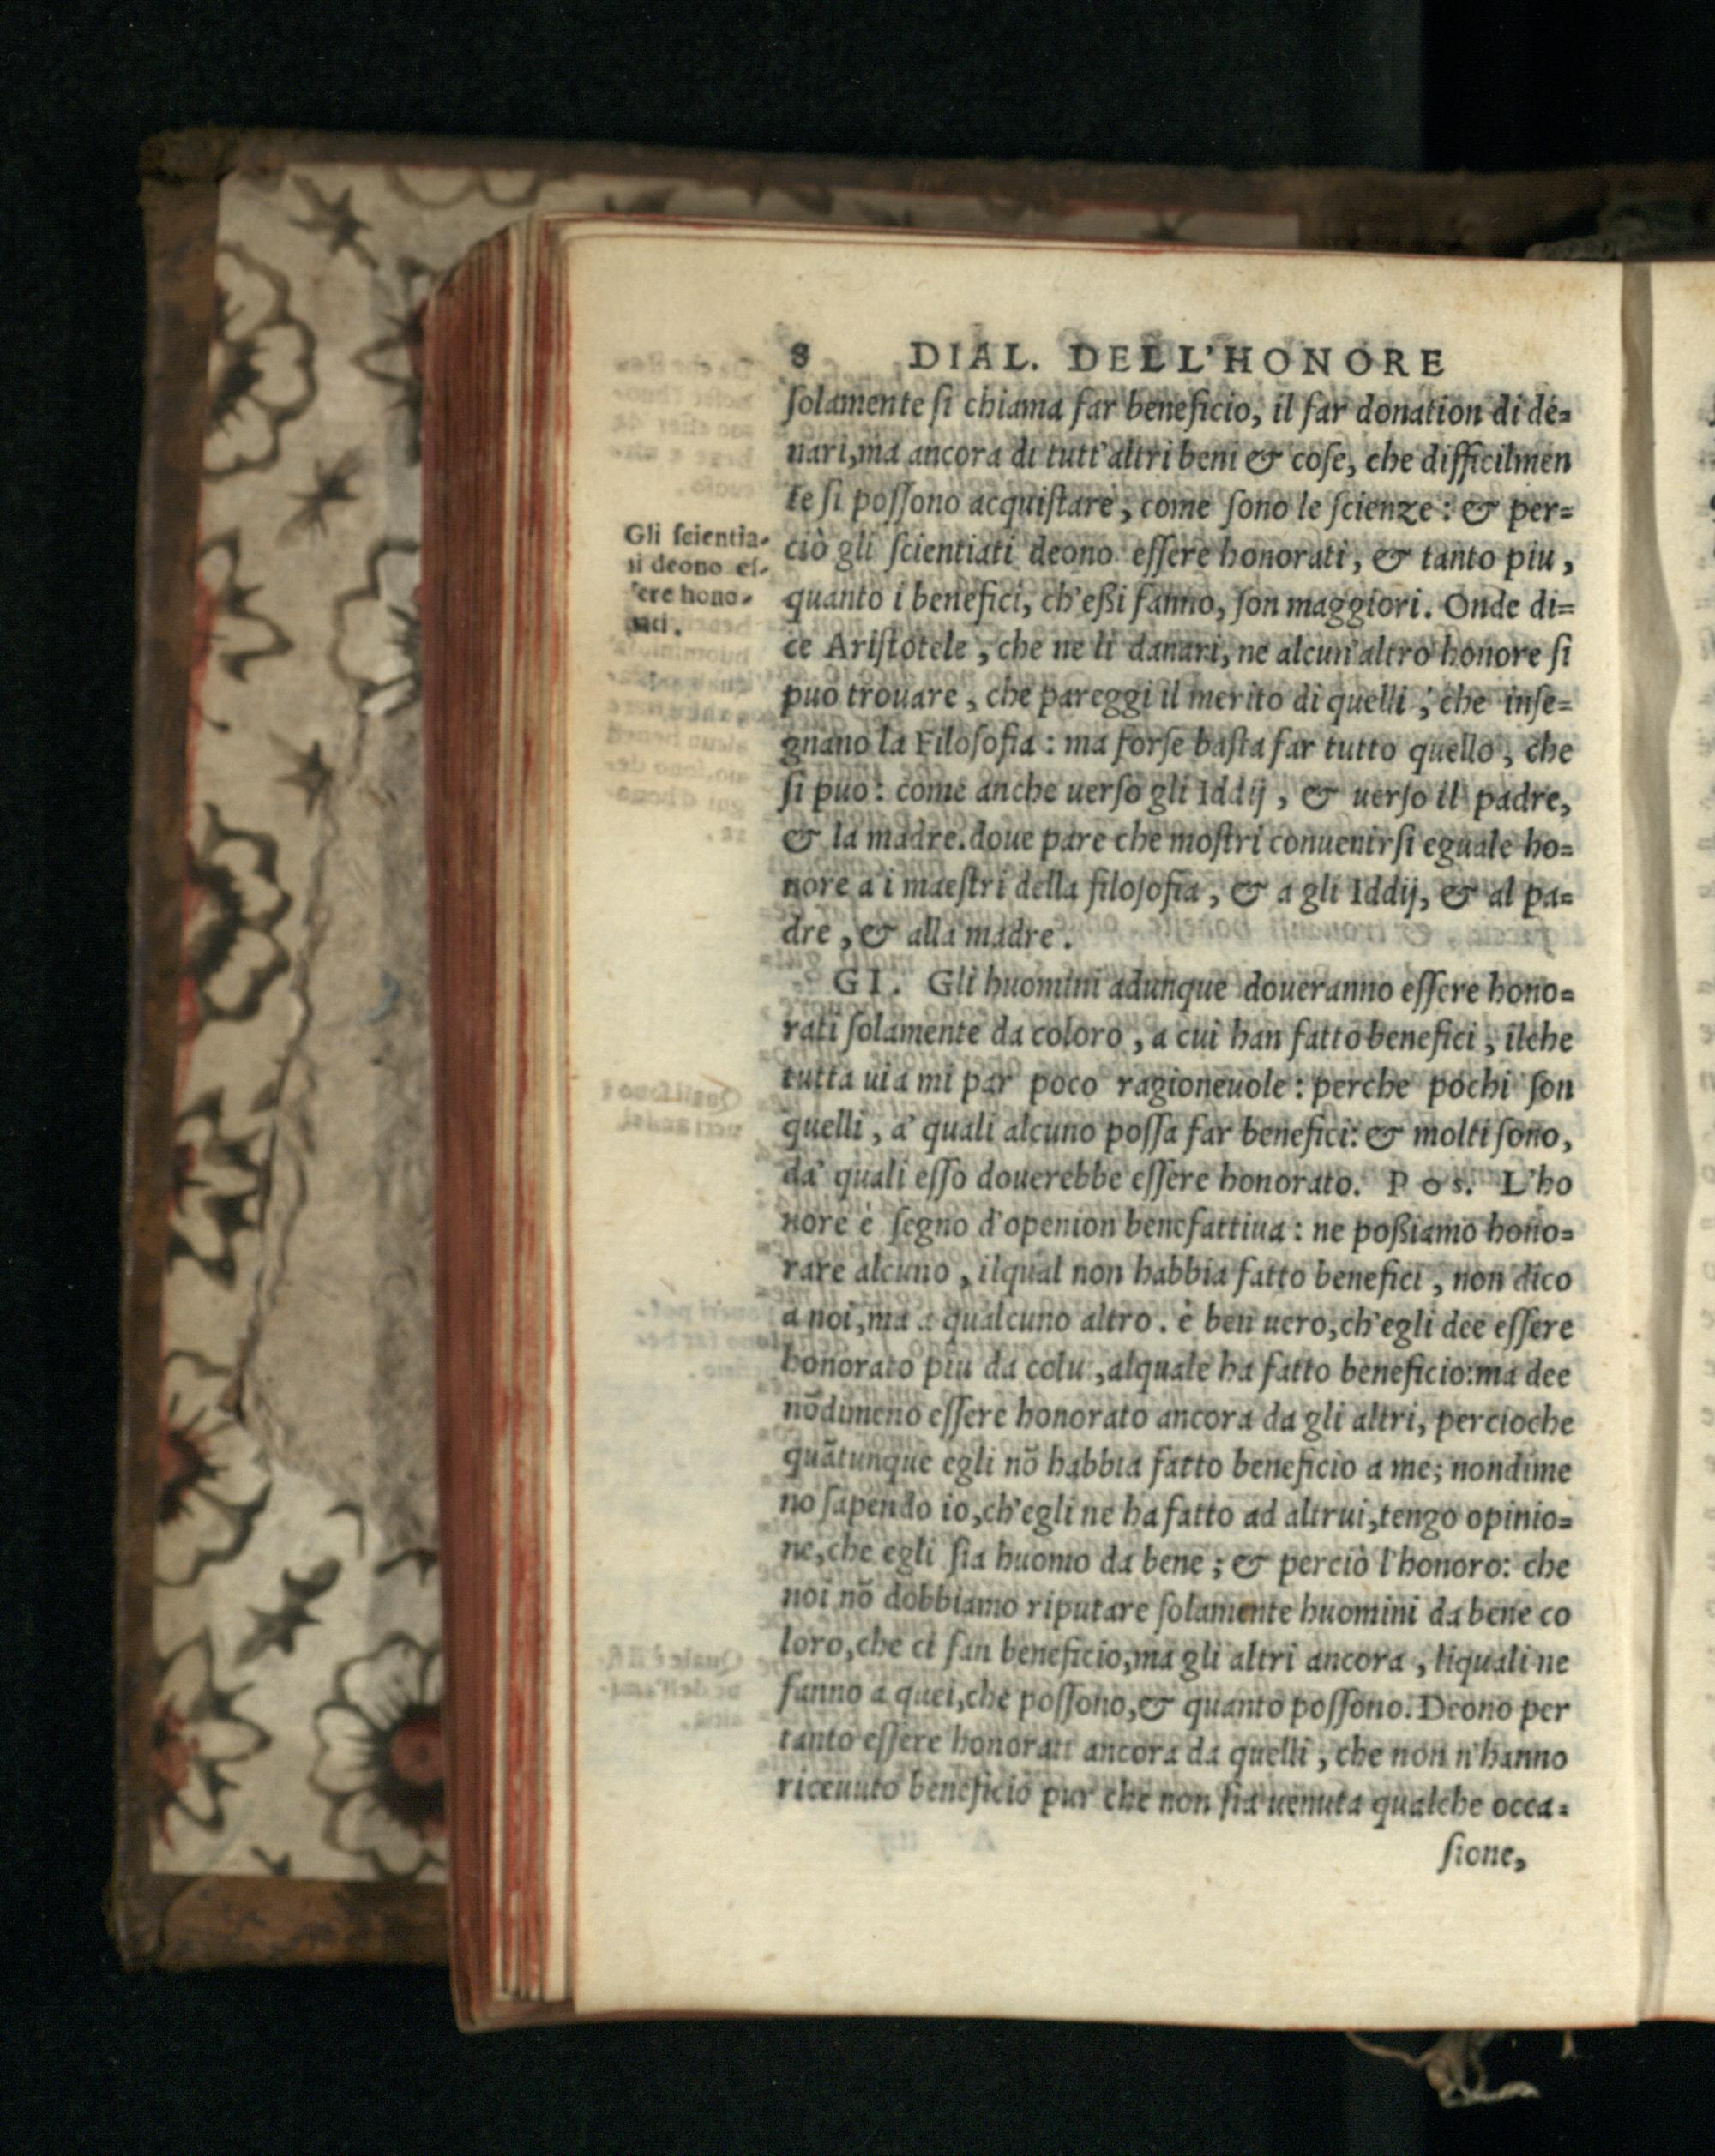 8 DIAL. DELL'HONORE
ſolamente ſi chiama far beneficio, il far donation di de=
nari, ma ancora di tutt'altri beni & coſe, che difficilmen
te ſi poſſono acquiſtare, come ſono le ſcienze: & per=
ciò gli ſcientiati deono eſſere honorati, & tanto piu,
quanto i benefici, ch'eßi fanno, ſon maggiori. Onde di=
ce Ariſtotele, che ne li danari, ne alcun'altro honore ſi
puo trouare, che pareggi il merito di quelli, che inſe=
gnano la Filoſofia: ma forſe baſta far tutto quello, che
ſi puo: come anche uerſo gli Iddij, & uerſo il padre,
& la madre. doue pare che moſtri conuenirſi eguale ho=
nore a i maeſtri della filoſofia, & a gli Iddij, & al pa=
dre, & alla madre.
GI. Gli huomini adunque doueranno eſſere hono=
rati ſolamente da coloro, a cui han fatto benefici, ilche
tutta uia mi par poco ragioneuole: perche pochi ſon
quelli, a' quali alcuno poſſa far benefici: & molti ſono,
da' quali eſſo douerebbe eſſere honorato. POS. L'ho
nore è ſegno d'openion benefattiua: ne poßiamo hono=
rare alcuno, ilqual non habbia fatto benefici, non dico
a noi, ma a qualcuno altro. è ben uero, ch'egli dee eſſere
honorato piu da colui, alquale ha fatto beneficio: ma dee
nõdimeno eſſere honorato ancora da gli altri, percioche
quãtunque egli nõ habbia fatto beneficio a me; nondime
no ſapendo io, ch'egli ne ha fatto ad altrui, tengo opinio=
ne, che egli ſia huomo da bene; & perciò l'honoro: che
noi nõ dobbiamo riputare ſolamente huomini da bene co
loro, che ci fan beneficio, ma gli altri ancora, liquali ne
fanno a quei, che poſſono, & quanto poſſono. Deono per
tanto eſſere honorati ancora da quelli, che non n'hanno
riceuuto beneficio pur che non ſia uenuta qualche occa=
ſione,
Gli ſcientia-
ti deono eſ-
ſere hono-
rati.